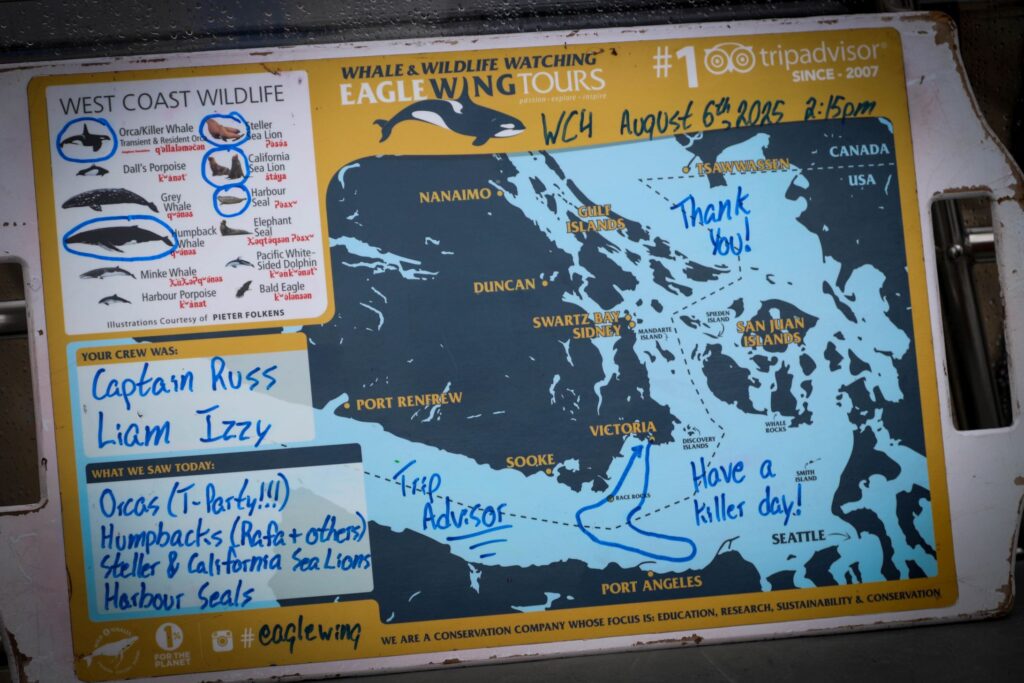 WEST COAST WILDLIFE
Orca/Killer Whale
Transient & Resident Orca
qʼəllaləməčən
Dall's Porpoise
kʷʼánətʼ
Grey
Whale
qʷʼánəs
Humpback
Whale
qʷʼánəs
Minke Whale
Harbour Porpoise
kʷʼánət
Steller
Sea Lion
California
Sea Lion
Harbour
Seal
Elephant
Seal
Pacific White-
Sided Dolphin
Bald Eagle
kʷʼəlánsən
Illustrations Courtesy of PIETER FOLKENS
WHALE & WILDLIFE WATCHING
EAGLE WING TOURS
passion · explore · inspire
#1 tripadvisor®
SINCE - 2007
WC4 August 6th, 2025 2:15pm
YOUR CREW WAS:
Captain Russ
Liam Izzy
WHAT WE SAW TODAY:
Orcas (T-Party!!!)
Humpbacks (Rafa + others)
Steller & California Sea Lions
Harbour Seals
CANADA
USA
TSAWWASSEN
NANAIMO
GULF
ISLANDS
Thank
You!
DUNCAN
SWARTZ BAY
SIDNEY
MANDARTE
ISLAND
SPIEDEN
ISLAND
SAN JUAN
ISLANDS
PORT RENFREW
VICTORIA
DISCOVERY
ISLANDS
WHALE
ROCKS
SOOKE
RACE ROCKS
SMITH
ISLAND
Trip
Advisor
Have a
killer day!
SEATTLE
PORT ANGELES
1%
FOR THE
PLANET
#eaglewing
WE ARE A CONSERVATION COMPANY WHOSE FOCUS IS: EDUCATION, RESEARCH, SUSTAINABILITY & CONSERVATION